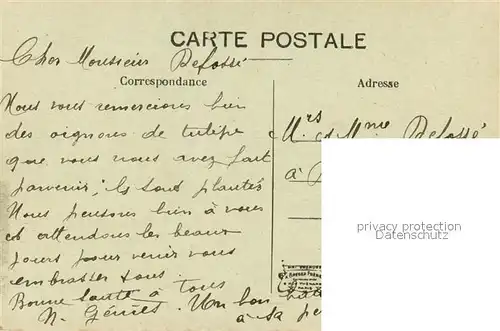 CARTE POSTALE
Cher Monsieur Defossé
Correspondance
Adresse
Nous vous remercions bien
des oignons de tulipe
que vous nous avez fait
parvenir; ils sont plantés
Nous pensons bien à vous
et attendons les beaux
jours pour venir vous
embrasser tous.
Bonne santé à Tous
N. Génies. Un bon
à sa
Mrs et Mme Defossé
à
privacy protection
Datenschutz